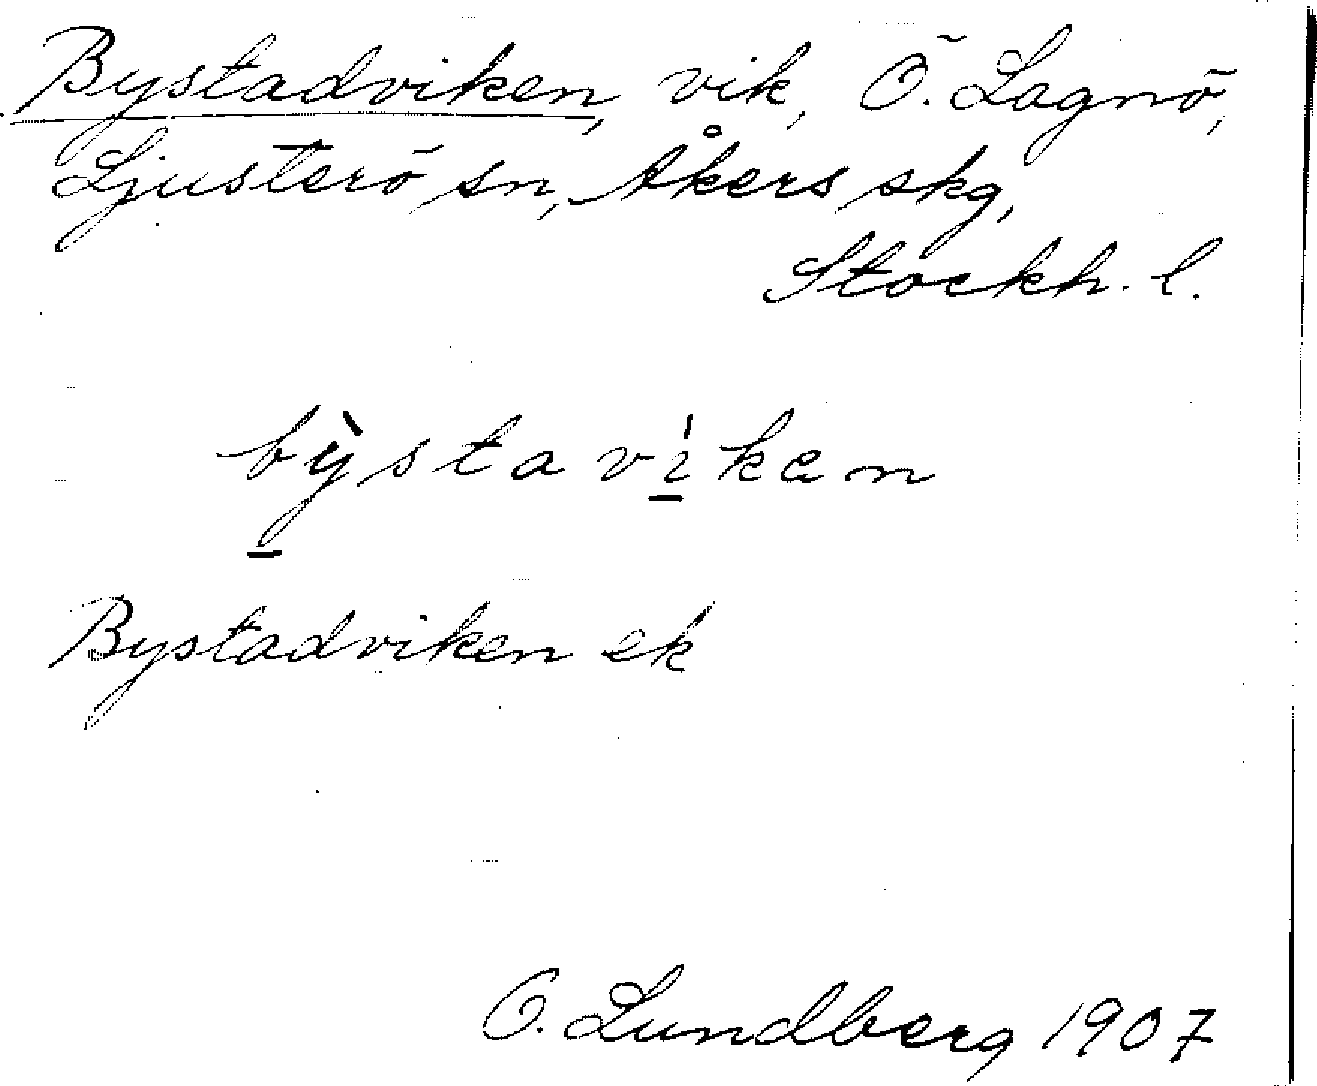 Bystadviken, vik, Ö. Lagnö,
Ljusterö sn, Åkers skg,
Stockh. l.
bỳstavi̍ken
Bystadviken ek
O. Lundberg 1907